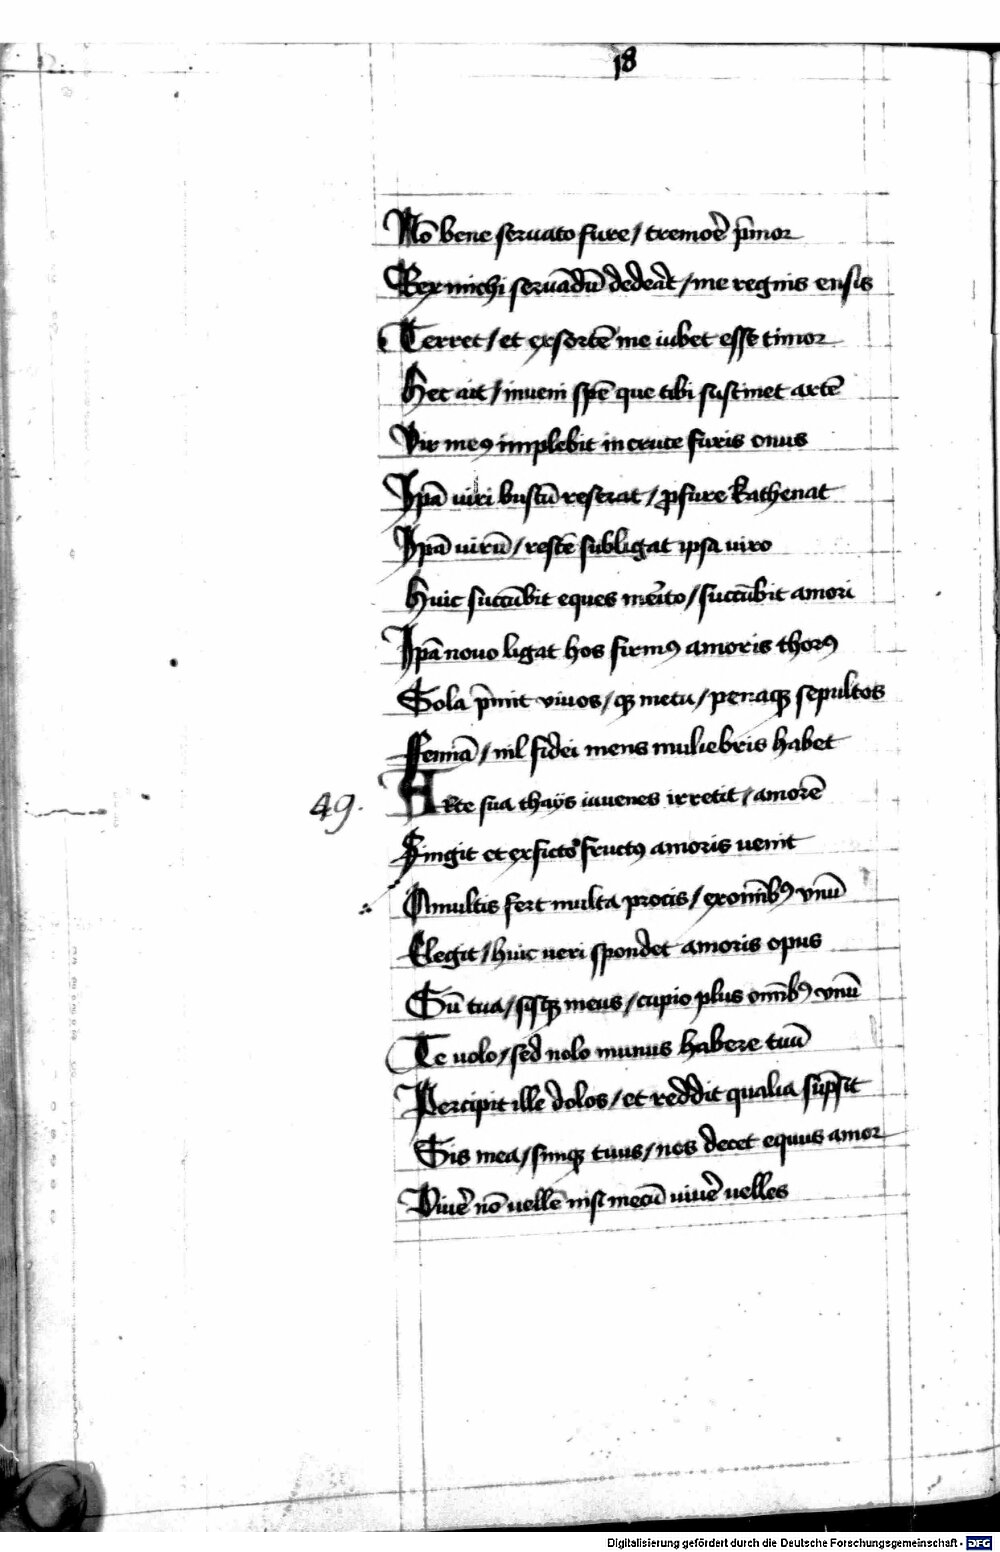 18
Nō bene seruato fure / tremoꝛ̄e p̄mor
Rex michi seruādū dedeāt / me regnis ensis
Terret / et exsortē me iubet esse timor
Hec ait / inueni spē que tibi sustinet artē
Vir meꝰ implebit in cruce furis onus
Ip̄a uiri bustū reserat / ꝓ fure kathenat
Ip̄a uirū / restē subligat ipsa uiro
Huic succūbit eques mēito / succūbit amori
Ip̄a nouo ligat hos firmꝰ amoris thorꝰ
Sola p̄mit viuos / qꝫ metu / penaqꝫ sepultos
Femīa / nil fidei mens muliebris habet
49.
ARte sua thaÿs iuuenes irretit / amorē
Fingit et ex ficto fructꝰ amoris uenit
A multis fert multa procis / ex om̄ibꝰ vnū
Elegit / huic ueri spondet amoris opus
Sū tua / sisqꝫ meus / cupio plus om̄ibꝰ vnū
Te uolo / sed nolo munus habere tuū
Percipit ille dolos / et reddit qualia sūpsit
Sis mea / simqꝫ tuus / nos decet equus amor
Viuē nō vellē nisi mecū uiuē uelles
Digitalisierung gefördert durch die Deutsche Forschungsgemeinschaft - DFG